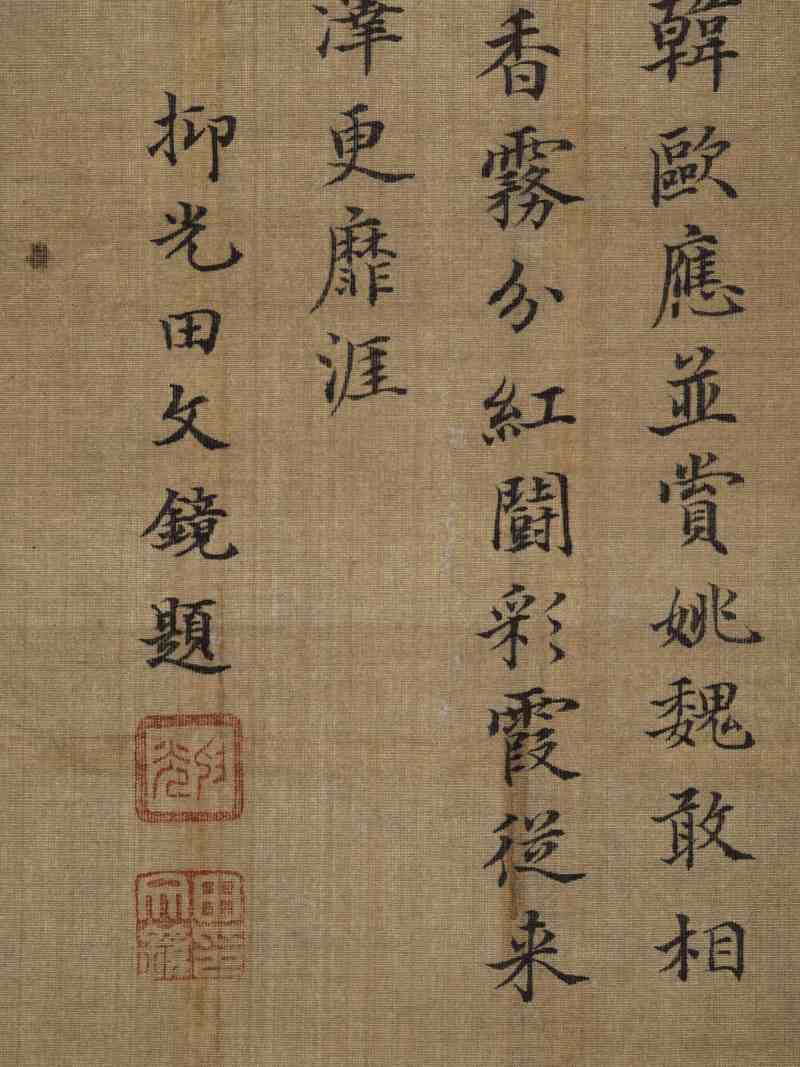 韓歐應並賞姚魏敢相
香霧分紅鬪彩霞從来
澤更靡涯
抑光田文鏡題
抑光